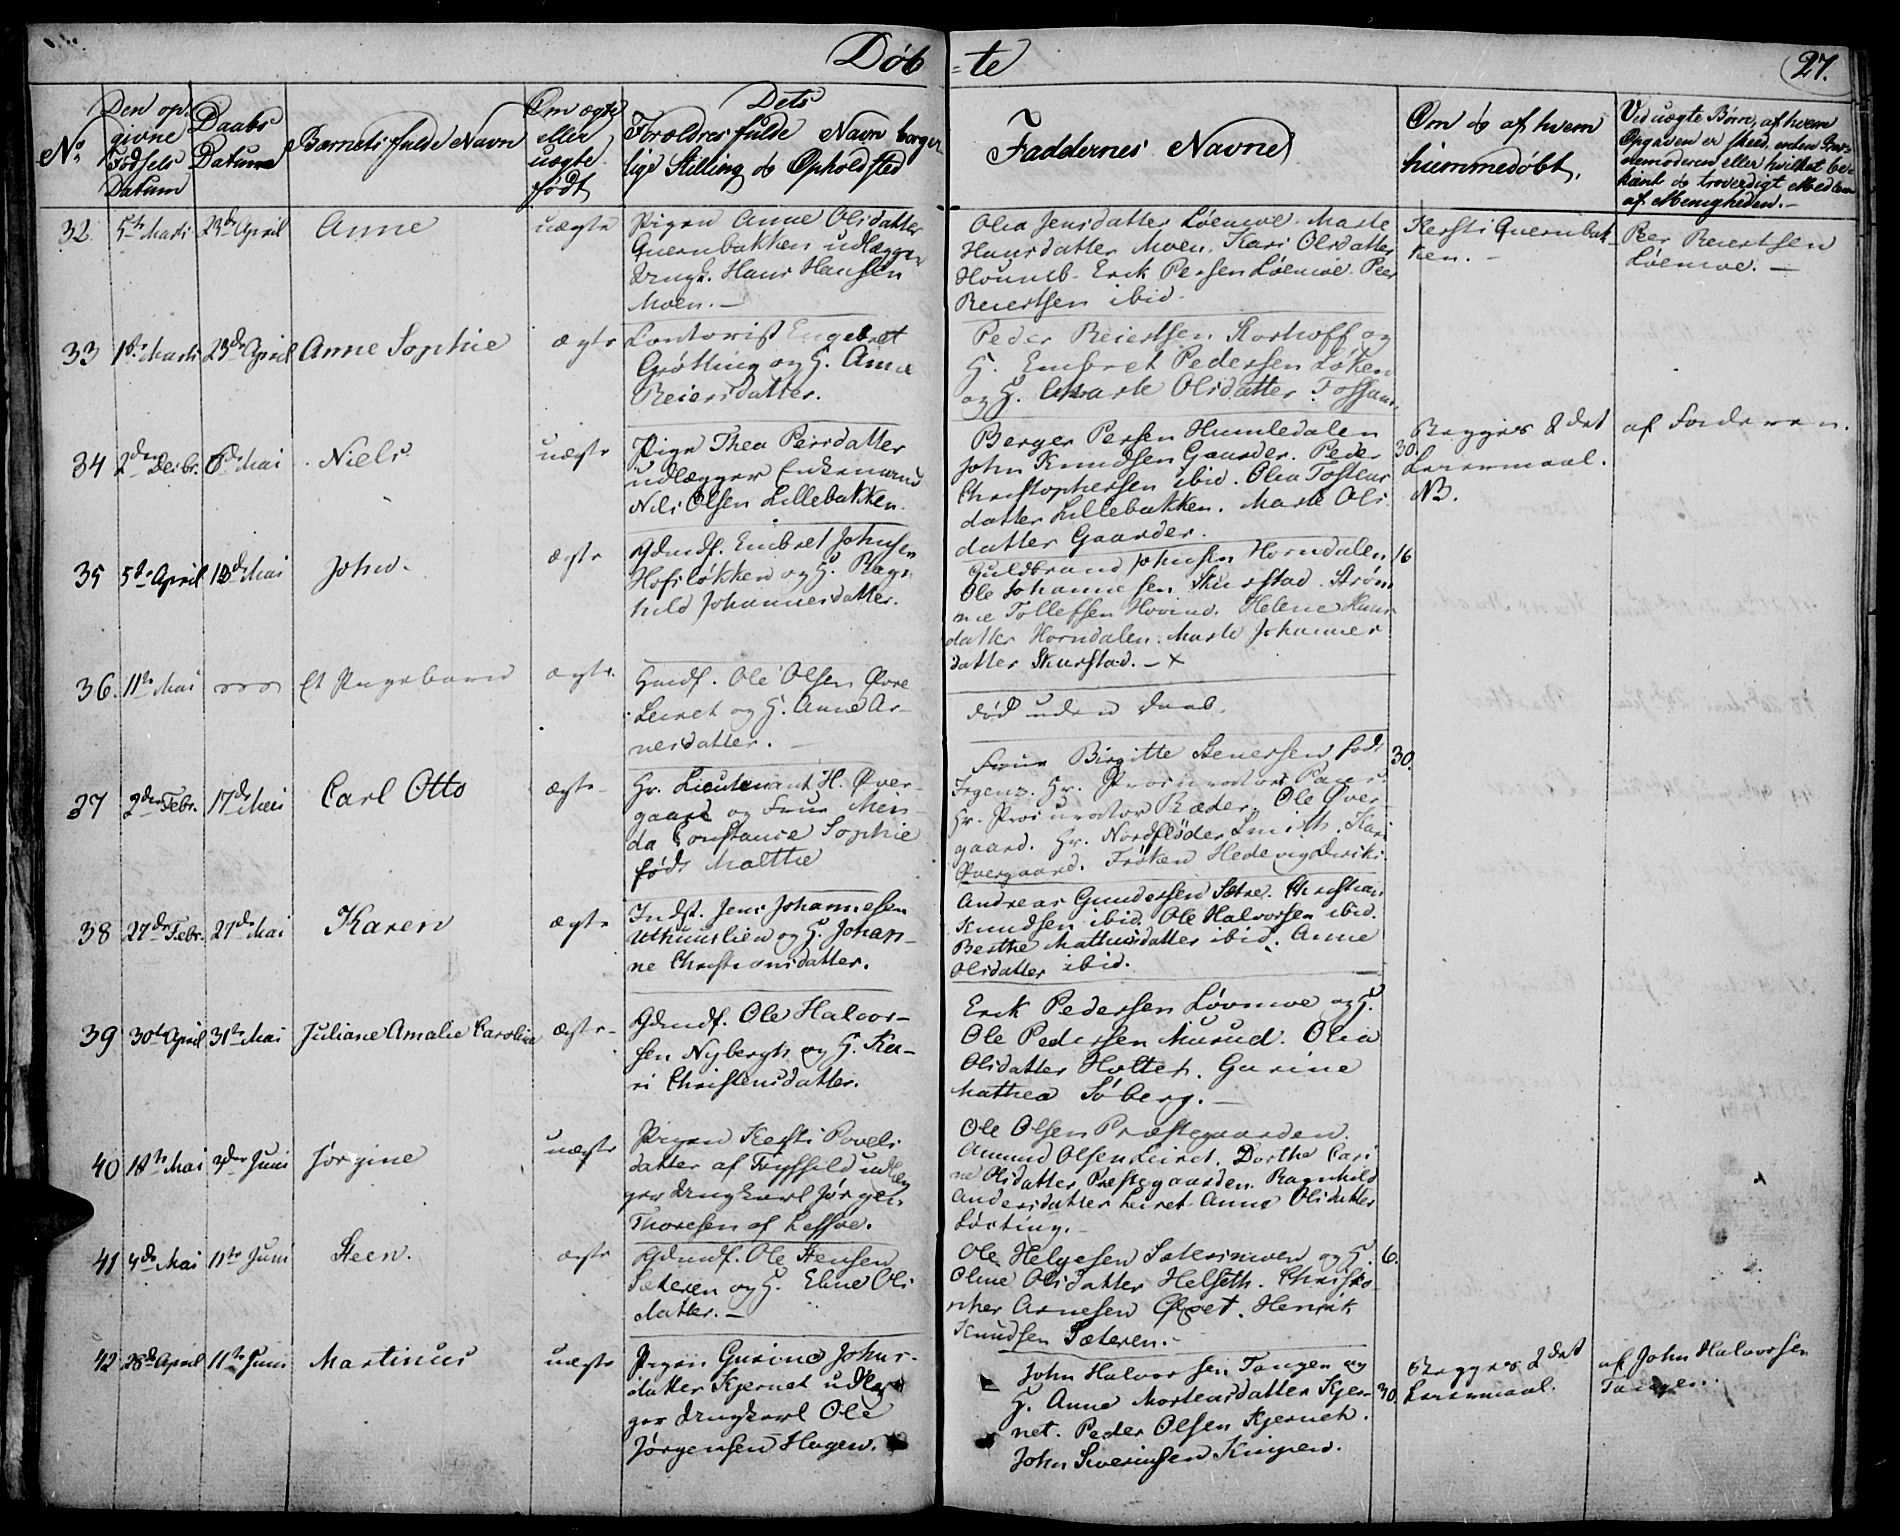 Døb=te
27.
No
Den op-
givne
Fødsels
Datum
Daabs
Datum
Barnets fulde Navn
Om ægte
eller
uægte
født
Dets
Forældres fulde Navn borger
lige Stilling og Opholdsted
Faddernes Navne
Om og af hvem
hiemmedøbt.
Ved uægte Børn, af hvem
Opgaven er skeed, enten Jor-
nemoderen eller hvilket be-
kiænt og troverdigt Medlem
af Menigheden.
32. 5te Marti 23de April Anne uægte
Pigen Anne Olsdatter
Quernbakken udlægger
Ungk. Hans Hansen
Moen.
Olia Jensdatter Løemoe. Marte
Hansdatter Moen. Kari Olsdatter
Erik Persen Løemoe. Peer
Reiertsen ibid.
Kersti Quernbak-
ken.
Peer Reiertsen
Løemoe.
33 1ste Marti 23de April Anne Sophie ægte
Contorist Engebret
Grøtting og H. Anne
Reiersdatter.
Peder Reiertsen Korthoff og
H. Embret Pedersen Løken
og H. Marte Olsdatter
34 2den Decbr. Mai Niels uægte
Pige Thea Persdatter
udlægger Enkemand
Nils Olsen Lillebakken.
Berger Persen Humledalen
John Knudsen Gaarder. Peder
Christophersen ibid. Olea Tostens
datter Lillebakken. Marte Ols
datter Gaarder.
30.
Begges 2det
Leiermaal.
NB.
af Faderen.
35 5te April Mai John. ægte
Gdmd. Embret Johnsen
Hofsløkken og H. Ragn
hild Johannesdatter.
Guldbrand Johnsen Horndalen
Ole Johannesen Skurstad. Strøm
me Tollefsen Hovind. Helene Hans
datter Horndalen. Marte Johannes
datter Skurstad. – x
16
36. 11te Mai Et Pigebarn ægte.
Gmd. Ole Olsen Øvre
Leiret og H. Anne Ar-
nesdatter.
død uden Daab.
37 2den Febr. 17de Mai Carl Otto ægte
Hr. Lieutenant H. Øver-
gaard og Frue Men-
da Constance Sophie
født Malthe
Frue Birgitte Stenersen født
Irgens. Hr. Procurator
Hr. Procurator Ræder. Ole Øver-
gaard. Hr. Smith. Kari
Øvergaard. Frøken Hedevig
30.
38 27de Febr. 27de Mai Karen ægte
Indst. Jens Johannesen
Uthuuslien og H. Johan-
ne Christiansdatter.
Andreas Gundersen Sætre. Christian
Knudsen ibid. Ole Halvorsen ibid.
Berthe Mathisdatter ibid. Anne
Olsdatter ibid.
39 30te April 31te Mai Juliane Amalie Caroline ægte
Gdmd. Ole Halvor-
sen Nybergh og H. Ka-
ri Christensdatter.
Erik Pedersen Løvmoe og H.
Ole Pedersen Murud. Olia
Olsdatter Holter. Gurine
Mathea Søberg.
40 18te Mai 3die Juni Jørgine uægte
Pigen Kersti Povels
datter af Trysild udlæg
ger Ungkarl Jørgen
Thoresen af Lessøe.
Ole Olsen Præstegaarden.
Amund Olsen Leiret. Dorthe Cari
ne Olsdatter Præstegaarden. Ragnhild
Andersdatter Leiret. Anne Olsdatter
Lørting.
41 4de Mai 11te Juni Steen. ægte
Gdmd. Ole Stensen
Sæteren og H. Eline Ols
datter.
Ole Helgesen Sætersmoen og H.
Oline Olsdatter Helseth. Christo-
pher Arnesen Øset. Henrik
Knudsen Sæteren.
6.
42 28de April 11te Juni Martinus uægte
Pigen Gurine Johns-
datter Kjernet udlæg
ger Ungkarl Ole
Jørgensen Hagen.
John Halvorsen Tangen og
H. Anne Mortensdatter Kjer-
net. Peder Olsen Kjernet.
John Siversen
30.
Begges 2det
Leiermaal.
af John Halvorsen
Tangen.